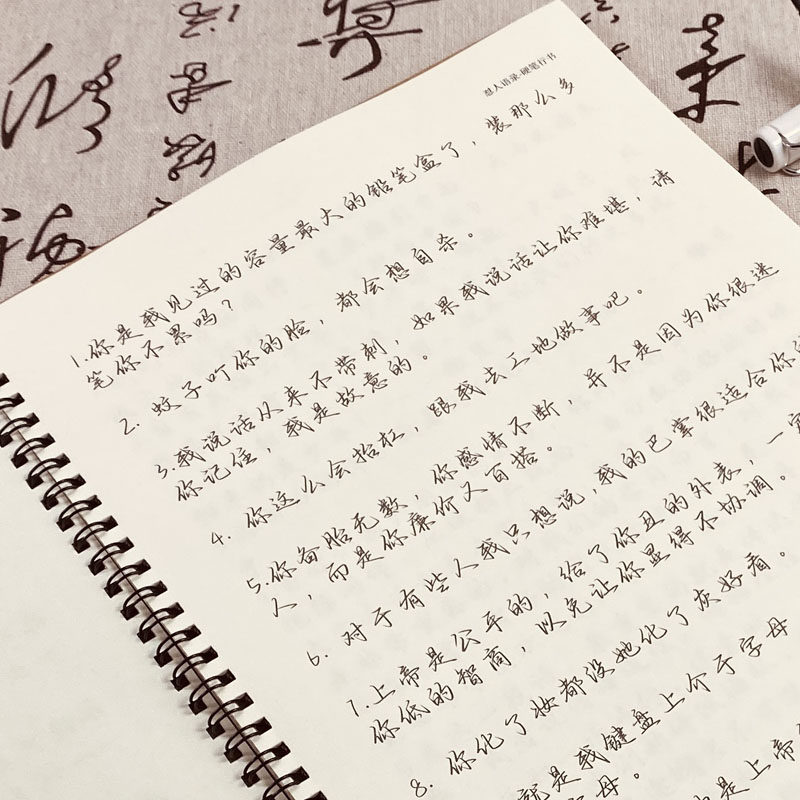 怼人语录·硬笔行书
1.你是我见过的容量最大的铅笔盒了，装那么多
笔你不累吗？
2. 蚊子叮你的脸，都会想自杀。
3.我说话从来不带刺，如果我说话让你难堪，请
你记住，我是故意的。
4. 你这么会抬杠，跟我去工地做事吧。
5.你备胎无数，你感情不断，并不是因为你很迷
人，而是你廉价又百搭。
6. 对于有些人我只想说，我的巴掌很适合你的
7.上帝是公平的，给了你丑的外表，一定
你低的智商，以免让你显得不协调。
8. 你化了妆都没她化了灰好看。
就是我键盘上介于字母
字母。
是上帝